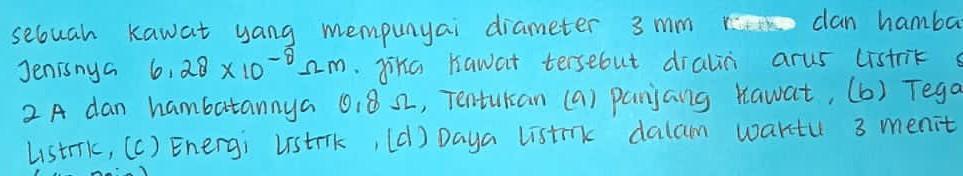 sebuah kawat yang mempunyai diameter 3 mm dan hamba
Jenisnya 6,28 x 10⁻⁸ Ωm. jika kawat tersebut dialiri arus listrik s
2 A dan hambatannya 0,8 Ω, Tentukan (a) panjang kawat, (b) Tega
Listrik, (c) Energi Listrik, (d) Daya Listrik dalam waktu 3 menit